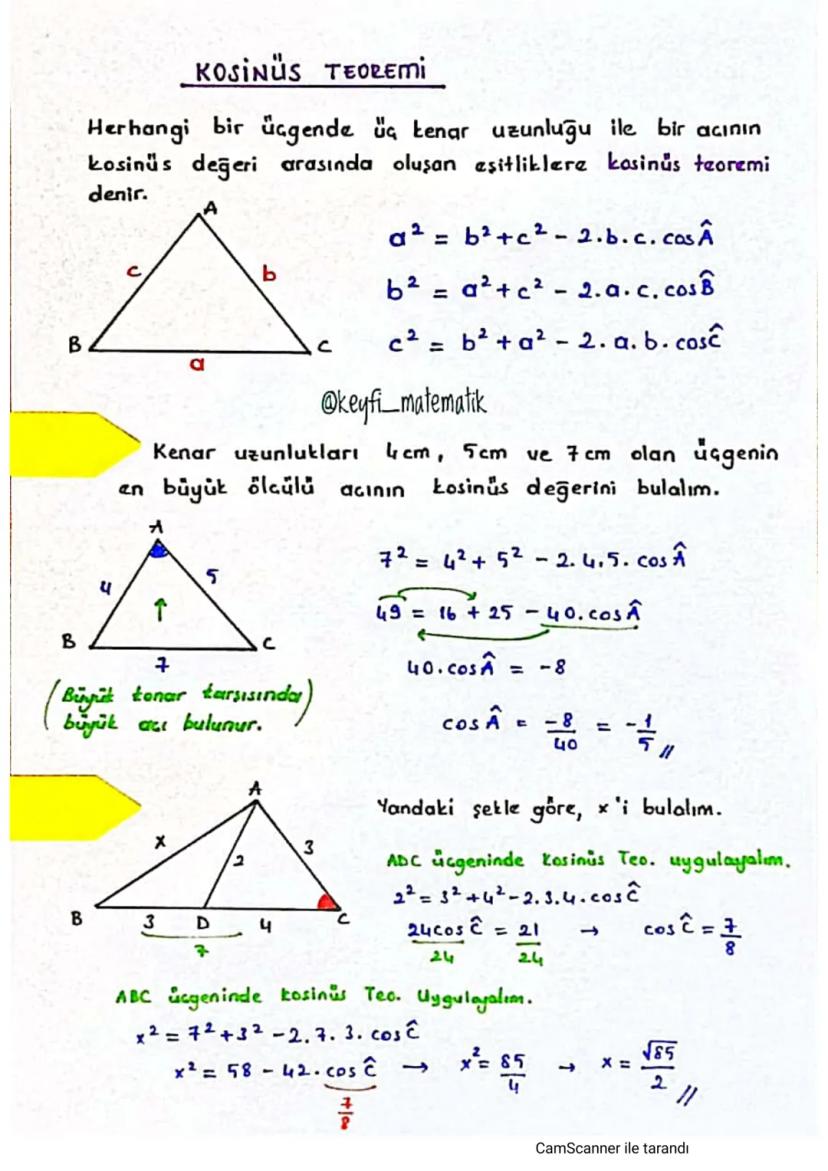 KOSİNÜS TEOREMİ
Herhangi bir üçgende üç kenar uzunluğu ile bir açının
kosinüs değeri arasında oluşan eşitliklere kosinüs teoremi
denir.
A
c
b
B
C
a
a² = b² + c² - 2.b.c.cosÂ
b² = a² + c² - 2.a.c.cosB̂
c² = b² + a² - 2.a.b.cosĈ
@keyfi_matematik
Kenar uzunlukları 4cm, 5cm ve 7cm olan üçgenin
en büyük ölçülü açının kosinüs değerini bulalım.
A
4
5
B
C
7
(Büyük kenar karşısında
büyük açı bulunur.)
7² = 4² + 5² - 2.4.5.cosÂ
49 = 16 + 25 - 40.cosÂ
40.cosÂ = -8
cosÂ = -8/40 = -1/5 //
A
x
2
3
B
3
D
4
C
7
Yandaki şekle göre, x'i bulalım.
ADC üçgeninde Kosinüs Teo. uygulayalım.
2² = 3² + 4² - 2.3.4.cosĈ
24cosĈ/24 = 21/24 → cosĈ = 7/8
ABC üçgeninde kosinüs Teo. Uygulayalım.
x² = 7² + 3² - 2.7.3.cosĈ
x² = 58 - 42.cosĈ → x² = 85/4 → x = √85/2 //
7/8
CamScanner ile tarandı